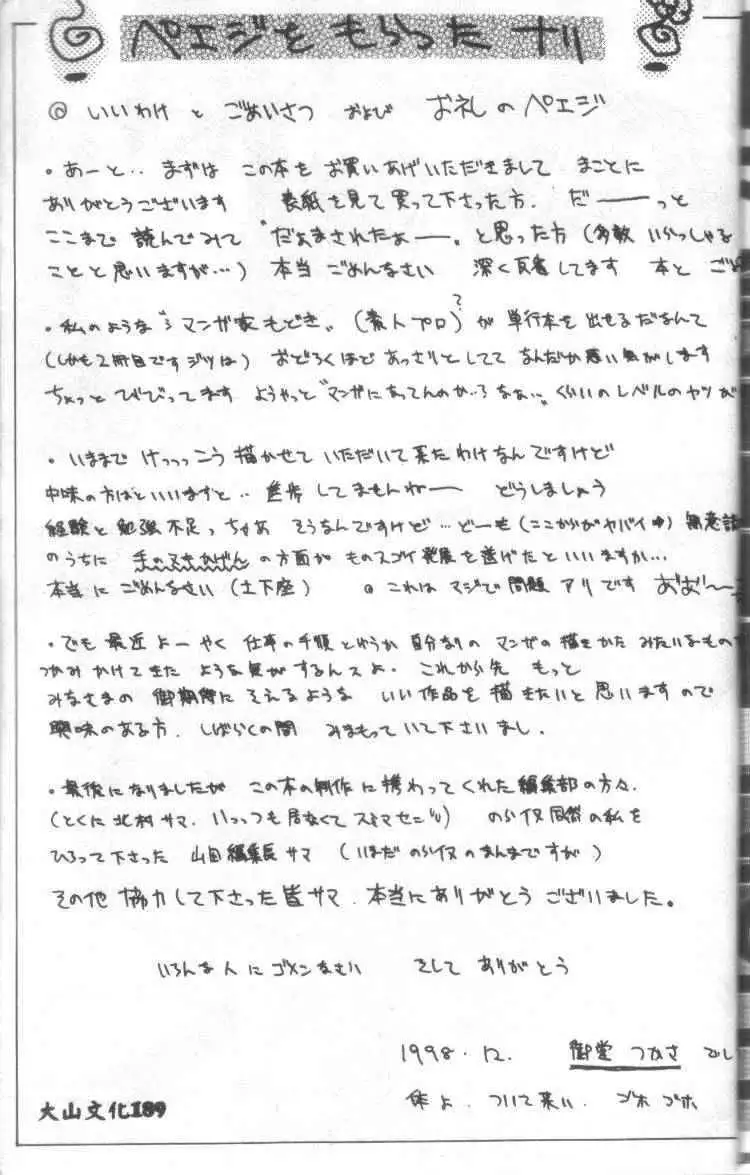 ペエジをもらったナリ
@ いいわけ と ごあいさつ および お礼 の ペエジ
・あーと‥ まずは この本を お買いあげいただきまして まことに
ありがとうございます 表紙を見て買って下さった方. だ――っと
ここまで 読んでみて "だぁまされたぁー。" と思った方 (多数 いらっしゃる
ことと思いますが…) 本当 ごめんなさい 深く反省してます 本と ごめ
・私のような "マンガ家もどき" (素人プロ)? が 単行本を 出せるだなんて
(しかも2冊目です ジツは) おどろくほど あっさりとしてて なんだか悪い気がします
ちょっと びびってます ようやっと "マンガになってんのか‥ なぁ…" くらいの レベルの ヤツが
・いままで けっっっこう 描かせて いただいて 来たわけなんですけど
中味の方はといいますと‥ 進歩してませんねー どうしましょう
経験と 勉強不足っちゃあ そうなんですけど… どーも (ここからがヤバイ) 無意識
のうちに 手のヌキかげん の方面が ものスゴイ 発展を遂げたといいますか…
本当に ごめんなさい (土下座) @ これは マジで 問題 アリです おおお〜
・でも 最近 よーやく 仕事の手順 というか 自分なりの マンガの描きかた みたいなもの
つかみかけてきた ような気がするんスよ. これから先 もっと
みなさまの 御期待に そえるような いい作品を 描きたいと思いますので
興味のある方. しばらくの間 みまもって いて下さいまし.
・最後になりましたが この本の制作に携わってくれた 編集部の方々.
(とくに 北村サマ. いっっつも 居なくて スミマセン) のらイヌ同然の私を
ひろって下さった 山田編集長サマ (いまだ のらイヌのまんまですが)
その他 協力して下さった皆サマ. 本当にありがとう ございました。
いろんな人に ゴメンなさい そして ありがとう
1998.12. 御堂 つかさ でし
体よ. ついて来い. ゴホ ゴホ
大山文化189